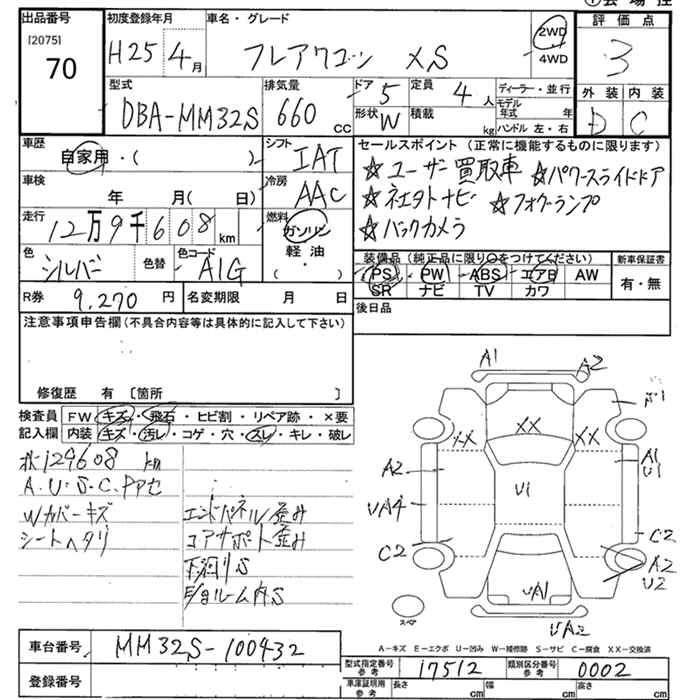 出品番号 初度登録年月 車名・グレード 評価点
[2075]
70 H25 4月 フレアワゴン XS 2WD 4WD 3
型式 排気量 ドア 定員 ディーラー・並行 外装 内装
DBA-MM32S 660cc 5 4人 モデル年式 年 D C
形状 W 積載 kg ハンドル 左・右
車歴 シフト セールスポイント(正常に機能するものに限ります)
自家用・( ) IAT ☆ユーザー買取車 ☆パワースライドドア
車検 年 月( 日) 冷房 AAC ☆ネエタトナビ ☆フォグランプ
走行 12万9千608km 燃料 ガソリン 軽油 ・( ) ☆バックカメラ
色 シルバー 色替 色コード A1G 装備品(純正品に限り○をつけてください) 新車保証書
PS PW ABS エアB AW 有・無
SR ナビ TV カワ
R券 9,270円 名変期限 月 日 後日品
注意事項申告欄(不具合内容等は具体的に記入して下さい)
修復歴 有 〔箇所 〕
検査員 FW キズ・飛石・ヒビ割・リペア跡・×要
記入欄 内装 キズ・汚レ・コゲ・穴・スレ・キレ・破レ
129608km
A.U.S.C.
Wカバーキズ エンドパネル歪み
シートヘタリ コアサポート歪み
下廻りS
ルーム内S
A1 A2
XX
XX XX
A1
U1
A2 U1
UA4
C2 C2
A2
U2
UA1
スペア
UA2
A-キズ E-エクボ U-凹み W-補修跡 S-サビ C-腐食 XX-交換済
車台番号 MM32S-100432
型式指定番号 参考 17512 類別区分番号 参考 0002
登録番号 車庫証明用 参考 長さ cm 幅 cm 高さ cm